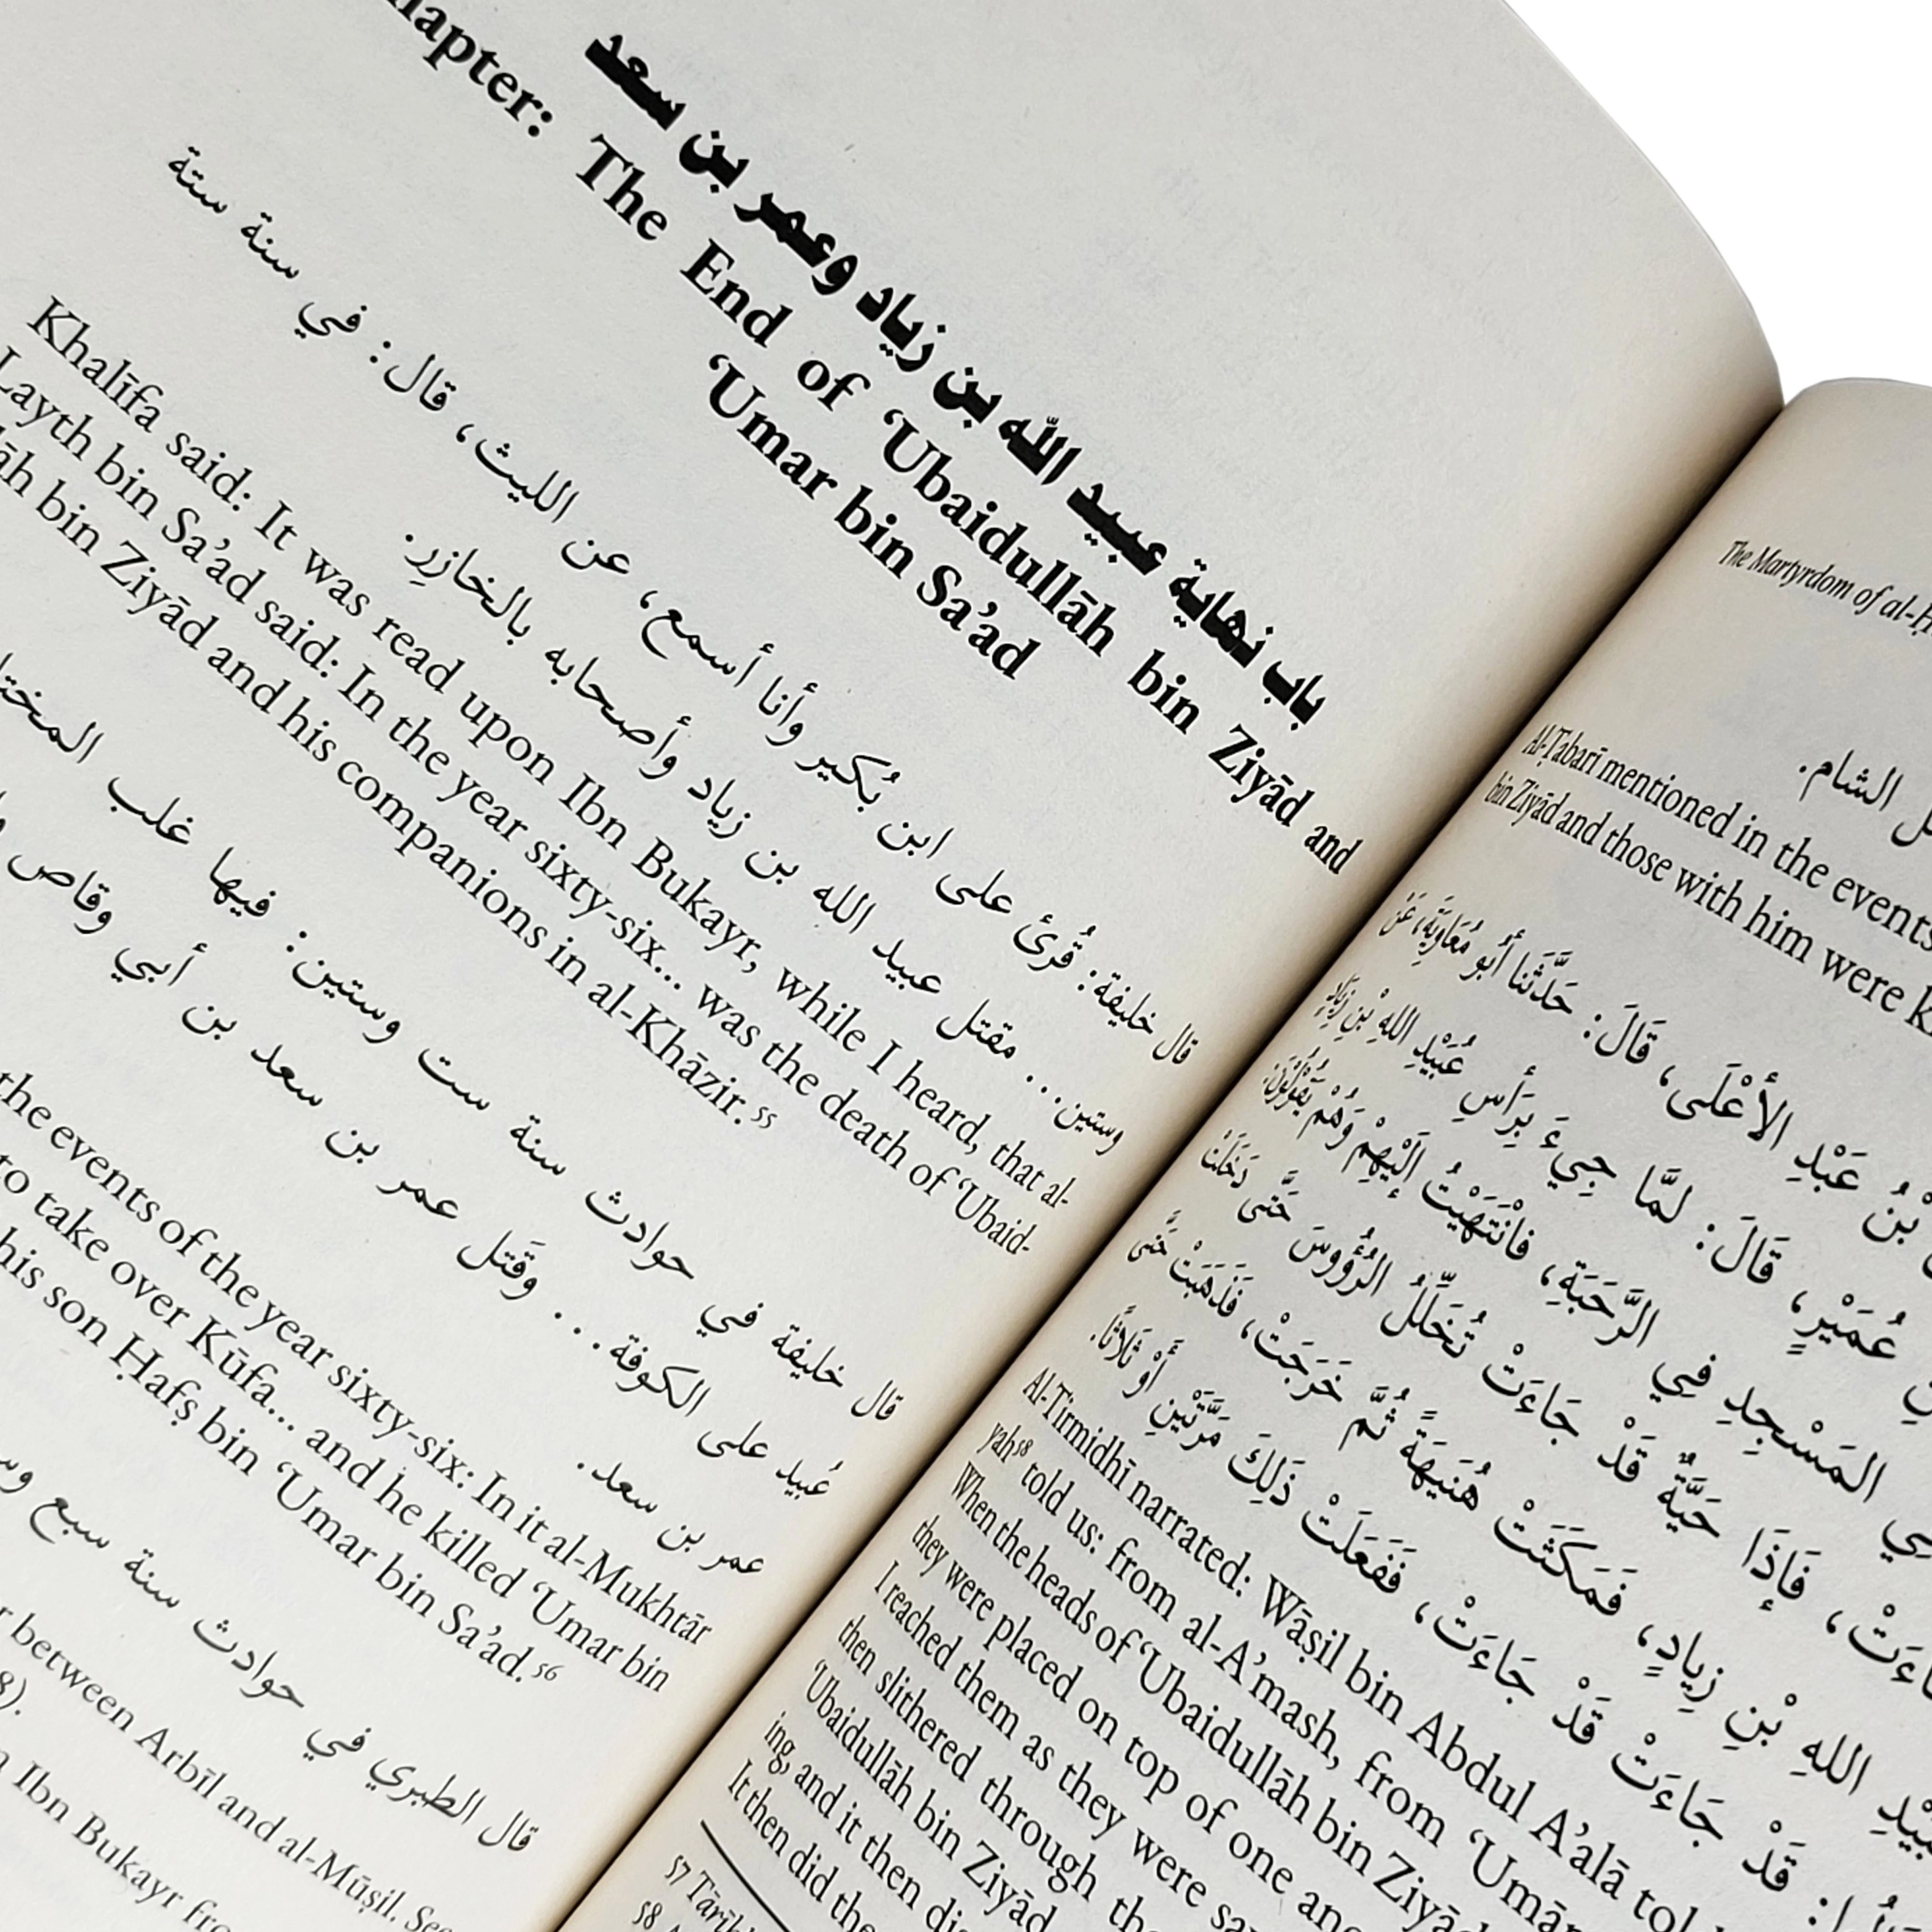 باب نهاية عبيد الله بن زياد وعمر بن سعد
The End of ‘Ubaidullāh bin Ziyād and
‘Umar bin Sa’ad
قال خليفة: قُرئ على ابن بُكير وأنا أسمع، عن الليث، قال: في سنة ستة
وستين... مقتل عبيد الله بن زياد وأصحابه بالخازِرِ.
Khalīfa said: It was read upon Ibn Bukayr, while I heard, that al-
Layth bin Sa’ad said: In the year sixty-six... was the death of ‘Ubaid-
bin Ziyād and his companions in al-Khāzir.⁵⁵
قال خليفة في حوادث سنة ست وستين: فيها غلب
عُبيد على الكوفة... وقَتل عمر بن سعد بن أبي وقاص
عمر بن سعد.
the events of the year sixty-six: In it al-Mukhtār
to take over Kūfa... and he killed ‘Umar bin
his son Ḥafṣ bin ‘Umar bin Sa’ad.⁵⁶
قال الطبري في حوادث سنة سبع
between Arbīl and al-Mūṣil. See
8).
Ibn Bukayr
The Martyrdom of
الشام.
Al-Ṭabarī mentioned in the events
bin Ziyād and those with him were
بْنُ عَبْدِ الأَعْلَى، قَالَ: حَدَّثَنا أَبُو مُعَاوِيَةَ، عَنْ
عُمَيْرٍ، قَالَ: لَمَّا جِيءَ بِرَأسِ عُبَيْدِ اللهِ بْنِ زِيَادٍ
المَسْجِدِ فِي الرَّحَبَةِ، فَانْتَهَيْتُ إِلَيْهِمْ وَهُمْ يَقُولُونَ:
فَإِذَا حَيَّةٌ قَدْ جَاءَتْ تُخَلِّلُ الرُّؤُوسَ حَتَّى دَخَلَتْ
اللهِ بْنِ زِيادٍ، فَمَكَثَتْ هُنَيهَةً ثُمَّ خَرَجَتْ، فَذَهَبَتْ حَتَّى
قَدْ جَاءَتْ قَدْ جَاءَتْ، فَفَعَلَتْ ذَلِكَ مَرَّتَيْنِ أَوْ ثَلاثًا.
Al-Tirmidhī narrated: Wāṣil bin Abdul A’alā told
yah⁵⁸ told us: from al-A’mash, from
When the heads of ‘Ubaidullāh bin
they were placed on top of one
I reached them as they were
then slithered through
‘Ubaidullāh bin Ziyād
ing, and it then
It then did
57
58